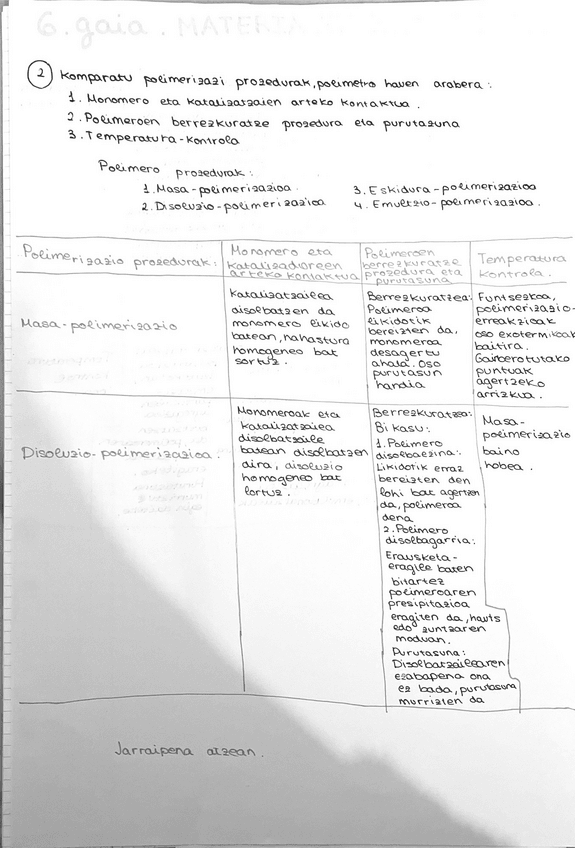 6. gaia. MATERIA
2 Konparatu polimerizazi prozedurak, polimetro hauen arabera:
1. Monomero eta katalizatzaien arteko kontaktua.
2. Polimeroen berrezkuratze prozedura eta purutasuna
3. Temperatura-kontrola
Polimero prozedurak:
1. Masa-polimerizazioa.
2. Disoluzio-polimerizazioa
3. Eskidura-polimerizazioa
4. Emultzio-polimerizazioa.
Polimerizazio prozedurak:
Monomero eta
katalizadoreen
arteko kontaktua
Polimeroen
berrezkuratze
prozedura eta
purutasuna
Temperatura
kontrola.
Masa-polimerizazio
Katalizatzailea
disolbatzen da
monomero likido
batean, nahastura
homogeneo bat
sortuz.
Berrezkuratzea:
Polimeroa
likidotik
bereizten da,
monomeroa
desagertu
ahala. Oso
purutasun
handia
Funtsezkoa,
polimerizazio-
erreakzioak
oso exotermikoak
baitira.
Gainberotutako
puntuak
agertzeko
arrizkua.
Disoluzio-polimerizazioa.
Monomeroak eta
katalizatzailea
disolbatzaile
batean disolbatzen
dira, disoluzio
homogeneo bat
lortuz.
Berrezkuratzea:
Bi kasu:
1. Polimero
disolbaezina:
Likidotik erraz
bereizten den
lohi bat agertzen
da, polimeroa
dena
2. Polimero
disolbagarria:
Erausketa-
eragile baten
bitartez
polimeroaren
presipitazioa
eragiten da, hauts
edo zuntzaren
moduan.
Purutasuna:
Disolbatzailearen
ezabapena ona
ez bada, purutasuna
murrizten da
Masa-
polimerizazio
baino
hobea.
Jarraipena atzean.